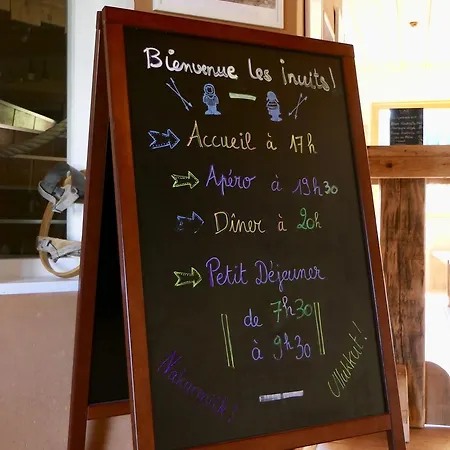 Bienvenue les inuits!
Accueil à 17h
Apéro à 19h30
Dîner à 20h
Petit Déjeuner
de 7h30
à 9h30
Nakurmiik!
Ullakkut!